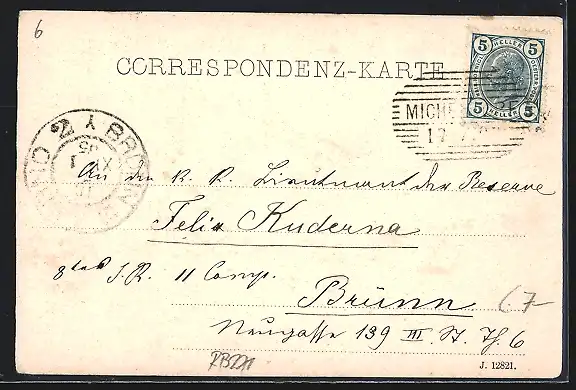 6
CORRESPONDENZ-KARTE
5 HELLER 5
5 HELLER 5
MICHE
BRÜNN
BRNO 2
An den K. K. Lieutnant der Reserve
Felix Kuderna
8tes I.R. 11 Comp.
Brünn
Neugasse 139 III. St. Th. 6
J. 12821.